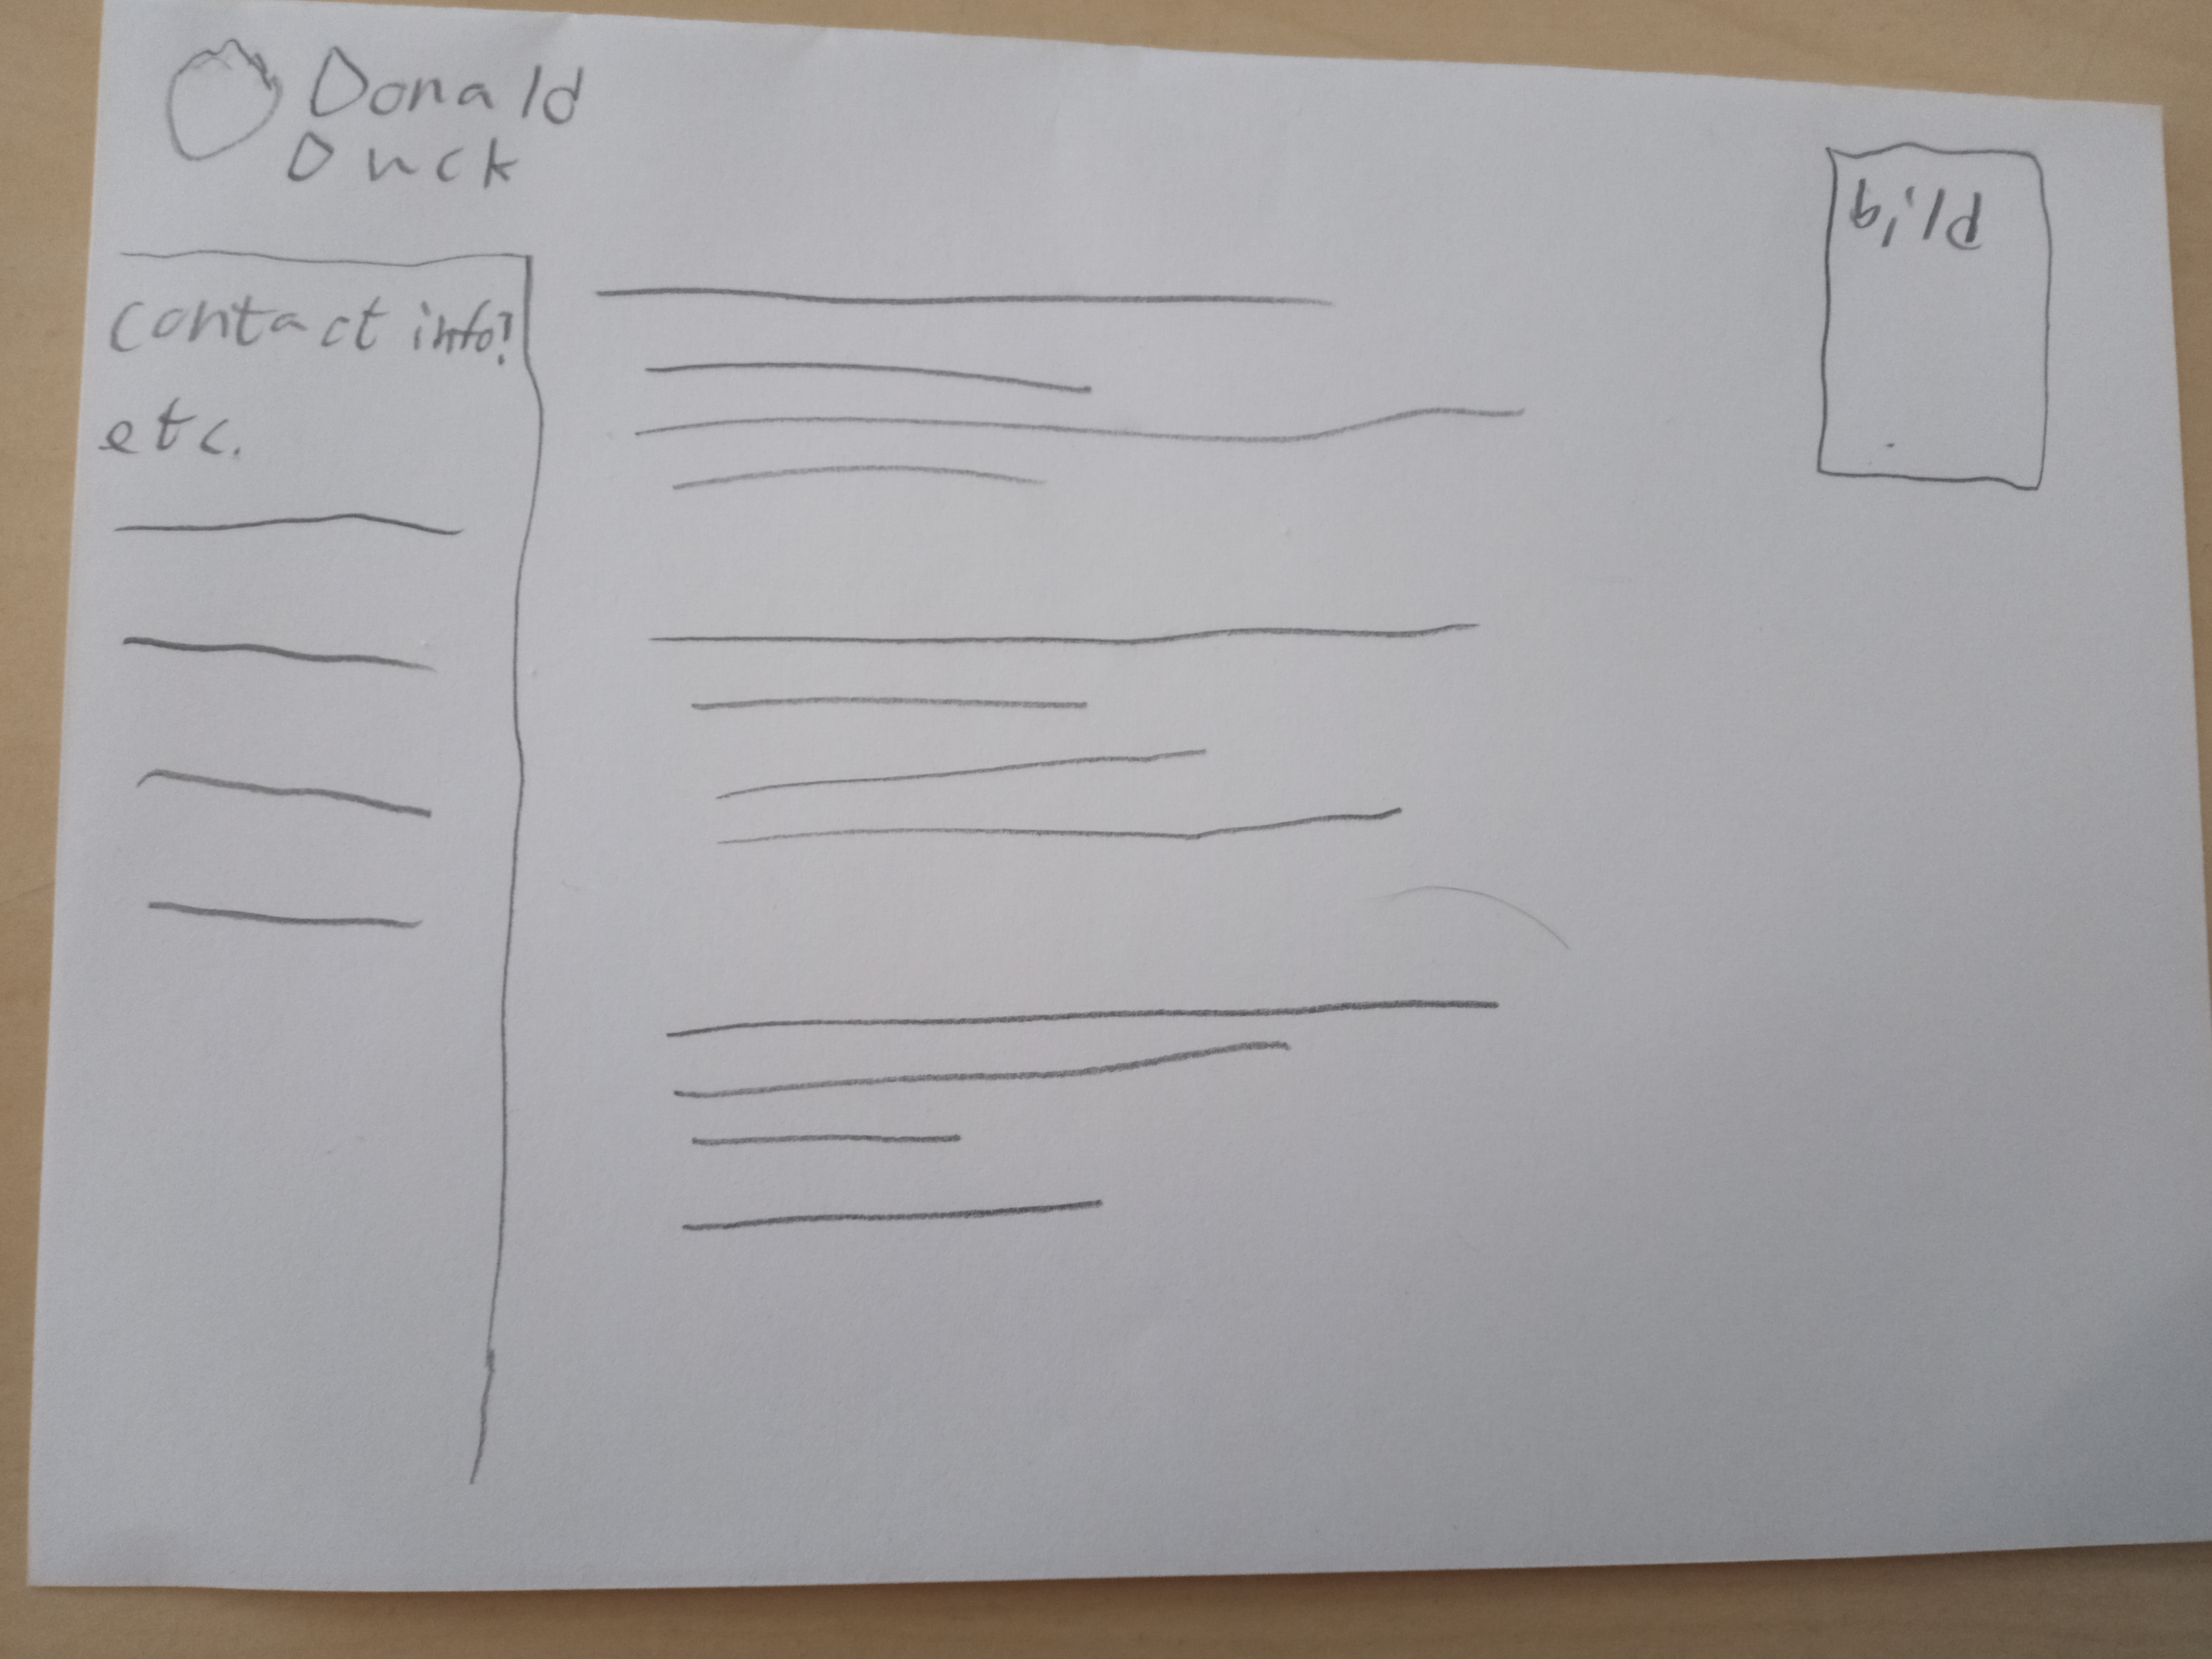 Donald
Duck
bild
contact info?
etc.